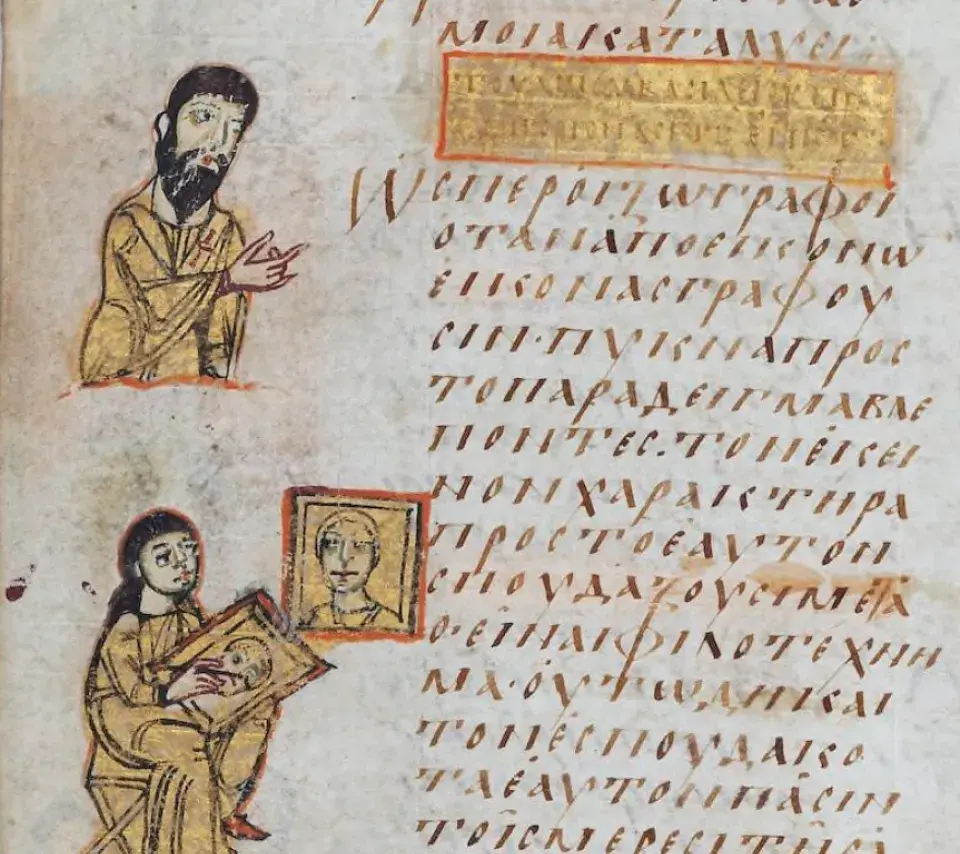 ΜΟΙΑΚΑΤΑΛΥΕΙ
ѠСΠΕΡΟΙΖѠΓΡΑΦΟΙ
ΟΤΑΝΑΠΟΕΙΚΟΝѠ
ΕΙΚΟΝΑСΓΡΑΦΟΥ
СΙΝ·ΠΥΚΝΑΠΡΟС
ΤΟΠΑΡΑΔΕΙΓΜΑΒΛΕ
ΠΟΝΤΕС·ΤΟΝΕΚΕΙ
ΝΟΝΧΑΡΑΚΤΗΡΑ
ΠΡΟСΤΟΕΑΥΤΟΝ
СΠΟΥΔΑΖΟΥСΙΜΕΤΑ
ΘΕΙΝΑΙΦΙΛΟΤΕΧΝΗ
ΜΑ·ΟΥΤѠΔΗΚΑΙ
ΤΟΝΕСΠΟΥΔΑΚΟ
ΤΑΕΑΥΤΟΝΠΑСΙΝ
ΤΟΙСΜΕΡΕСΙΤΗСΑ